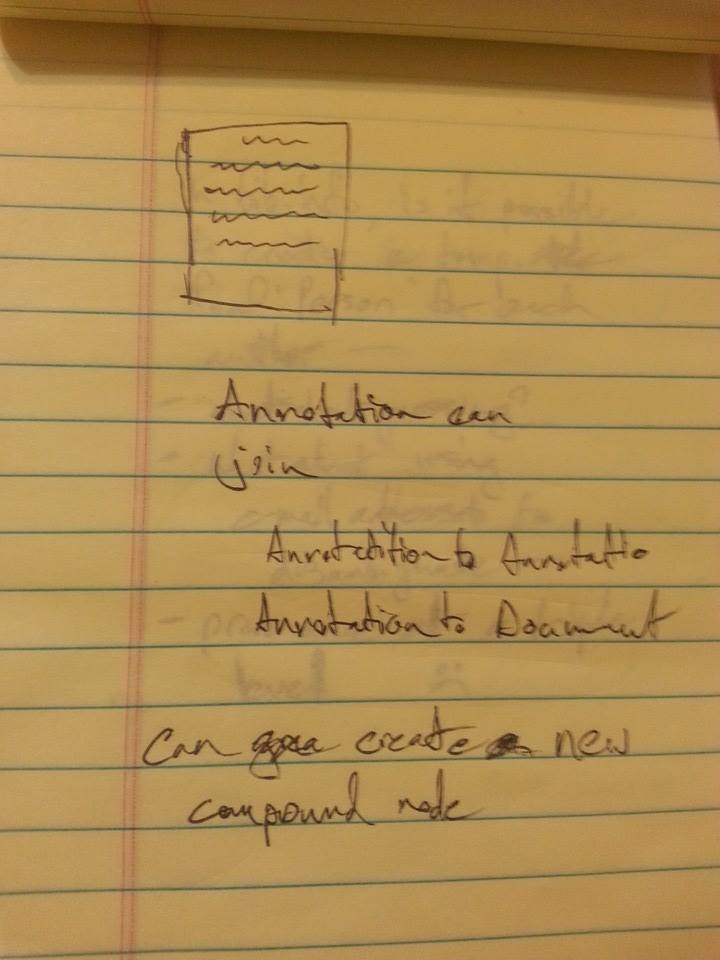 Annotation can
join
Annotatition to Annotatio
Annotation to Document
Can create new
compound node